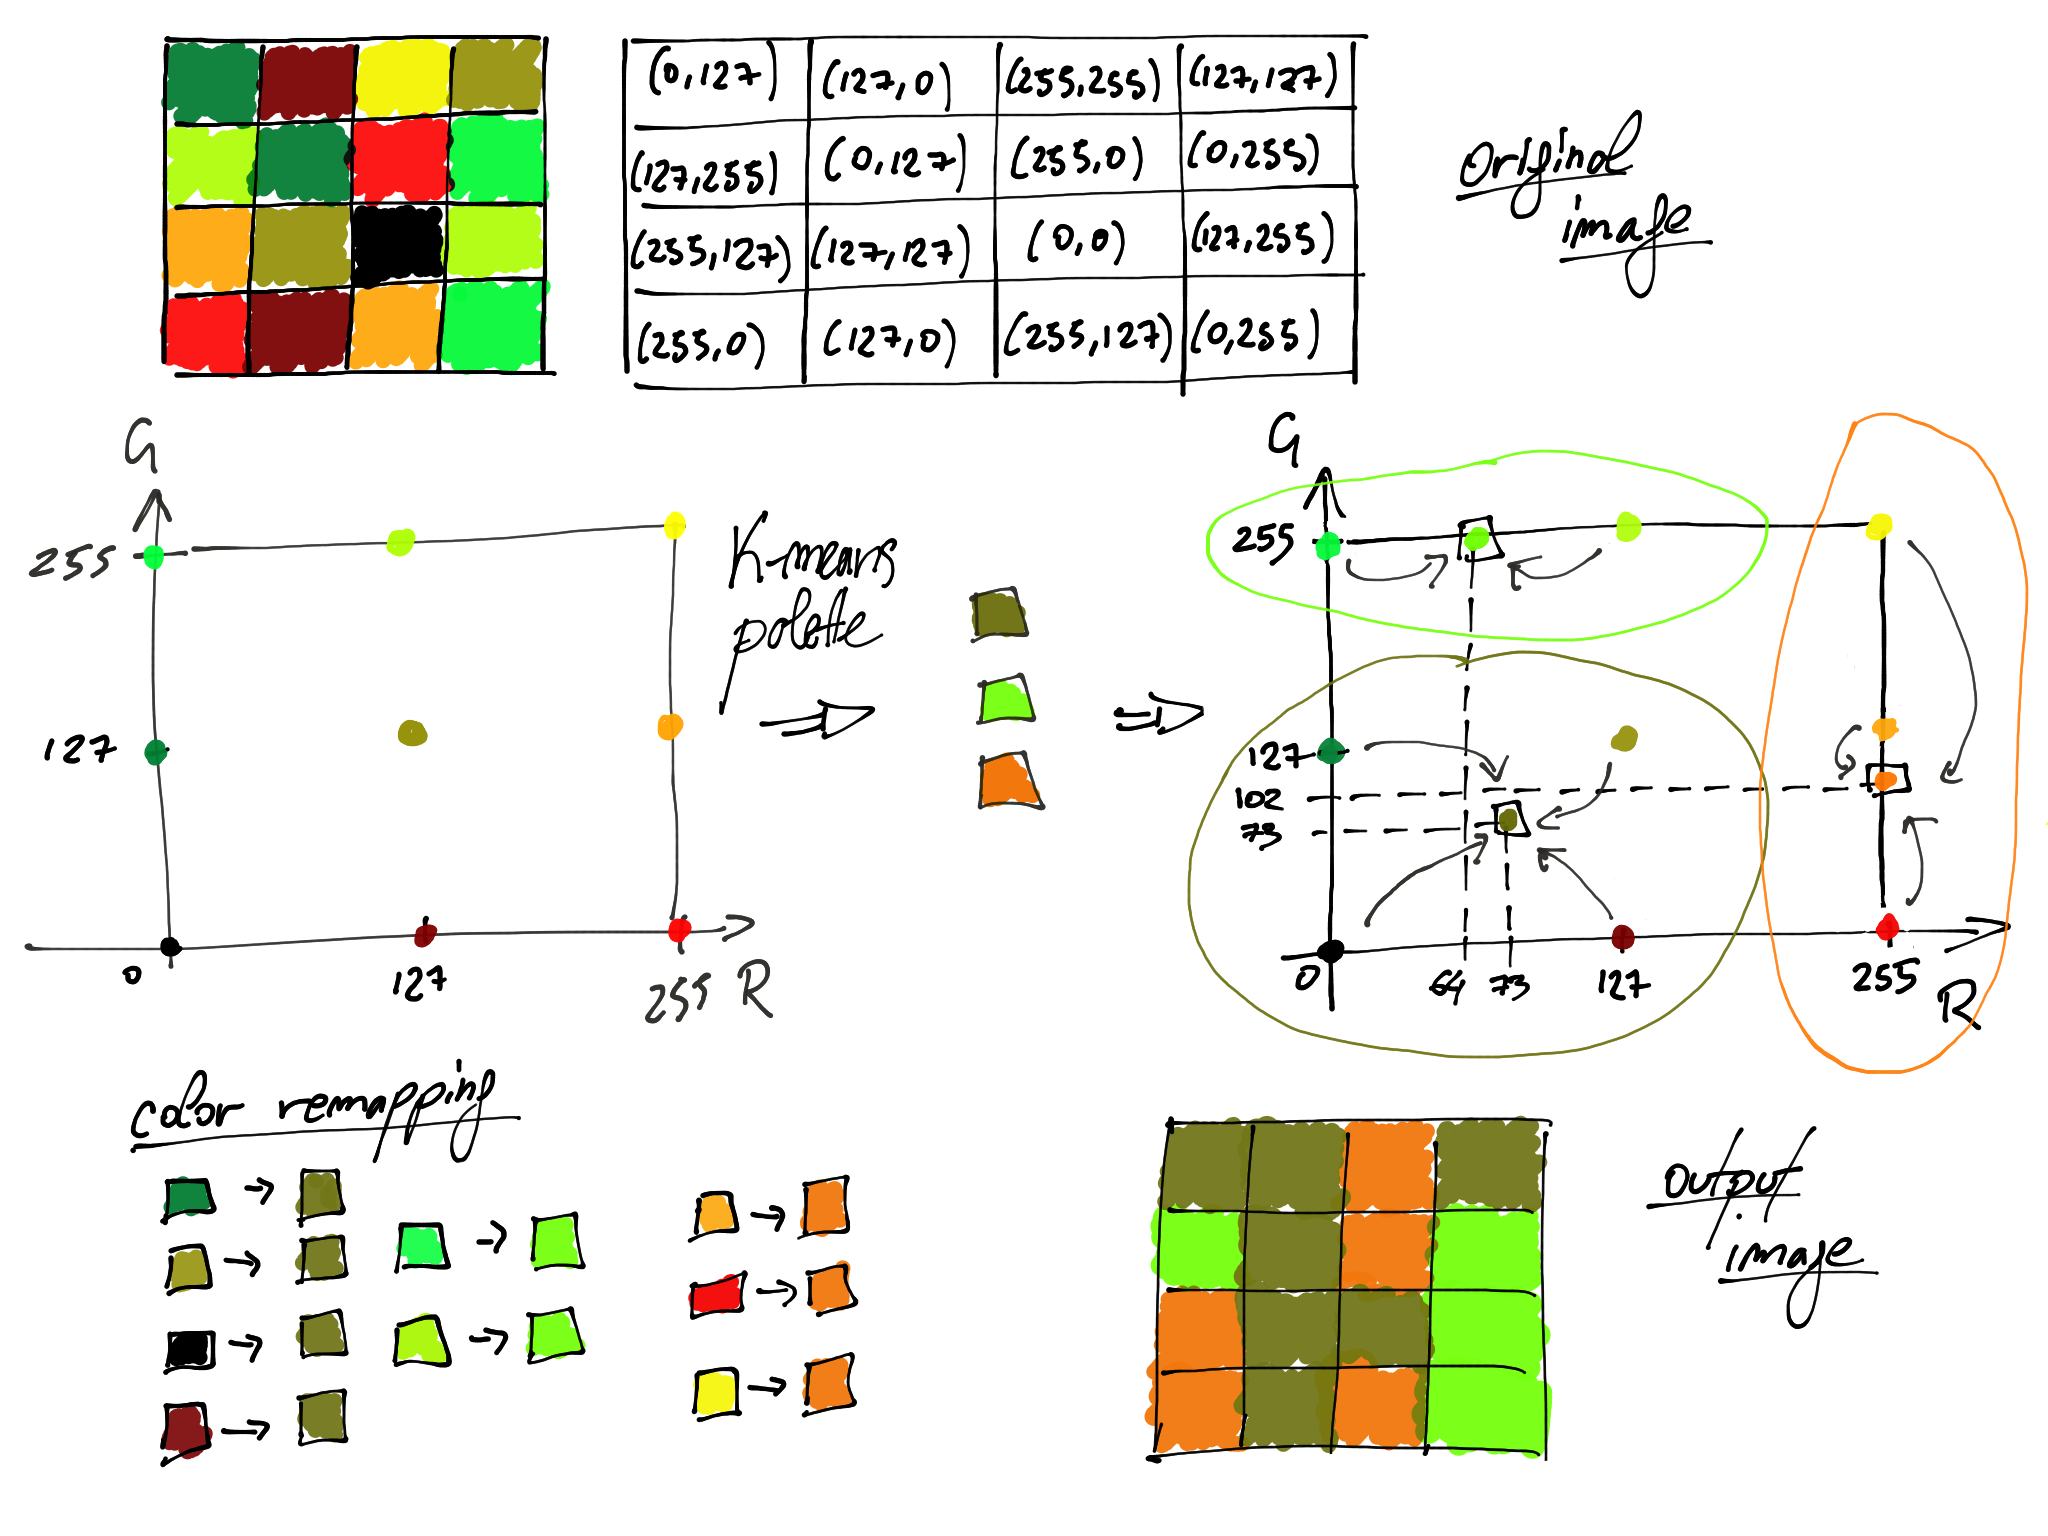 (0,127) (127,0) (255,255) (127,127)
(127,255) (0,127) (255,0) (0,255)
(255,127) (127,127) (0,0) (127,255)
(255,0) (127,0) (255,127) (0,255)
Original
image
G
255
127
0
127
255
R
K-means
palette
G
255
127
102
73
0
64
73
127
255
R
color remapping
output
image